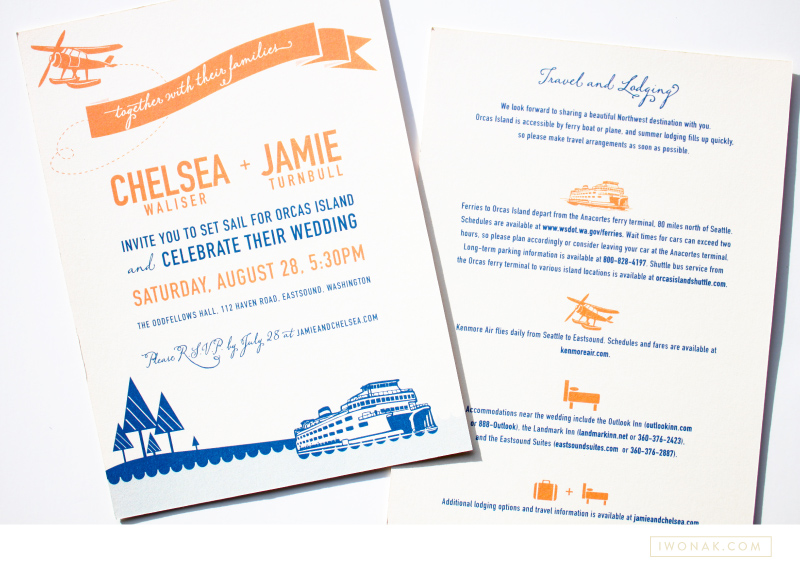 together with their families
CHELSEA + JAMIE
WALISER TURNBULL
INVITE YOU TO SET SAIL FOR ORCAS ISLAND
and CELEBRATE THEIR WEDDING
SATURDAY, AUGUST 28, 5:30PM
THE ODDFELLOWS HALL, 112 HAVEN ROAD, EASTSOUND, WASHINGTON
Please R.S.V.P by July, 28 at JAMIEANDCHELSEA.COM
Travel and Lodging
We look forward to sharing a beautiful Northwest destination with you.
Orcas Island is accessible by ferry boat or plane, and summer lodging fills up quickly,
so please make travel arrangements as soon as possible.
Ferries to Orcas Island depart from the Anacortes ferry terminal, 80 miles north of Seattle.
Schedules are available at www.wsdot.wa.gov/ferries. Wait times for cars can exceed two
hours, so please plan accordingly or consider leaving your car at the Anacortes terminal.
Long-term parking information is available at 800-828-4197. Shuttle bus service from
the Orcas ferry terminal to various island locations is available at orcasislandshuttle.com.
Kenmore Air flies daily from Seattle to Eastsound. Schedules and fares are available at
kenmoreair.com.
Accommodations near the wedding include the Outlook Inn (outlookinn.com
or 888-Outlook), the Landmark Inn (landmarkinn.net or 360-376-2423),
and the Eastsound Suites (eastsoundsuites.com or 360-376-2887).
+
Additional lodging options and travel information is available at jamieandchelsea.com
IWONAK.COM